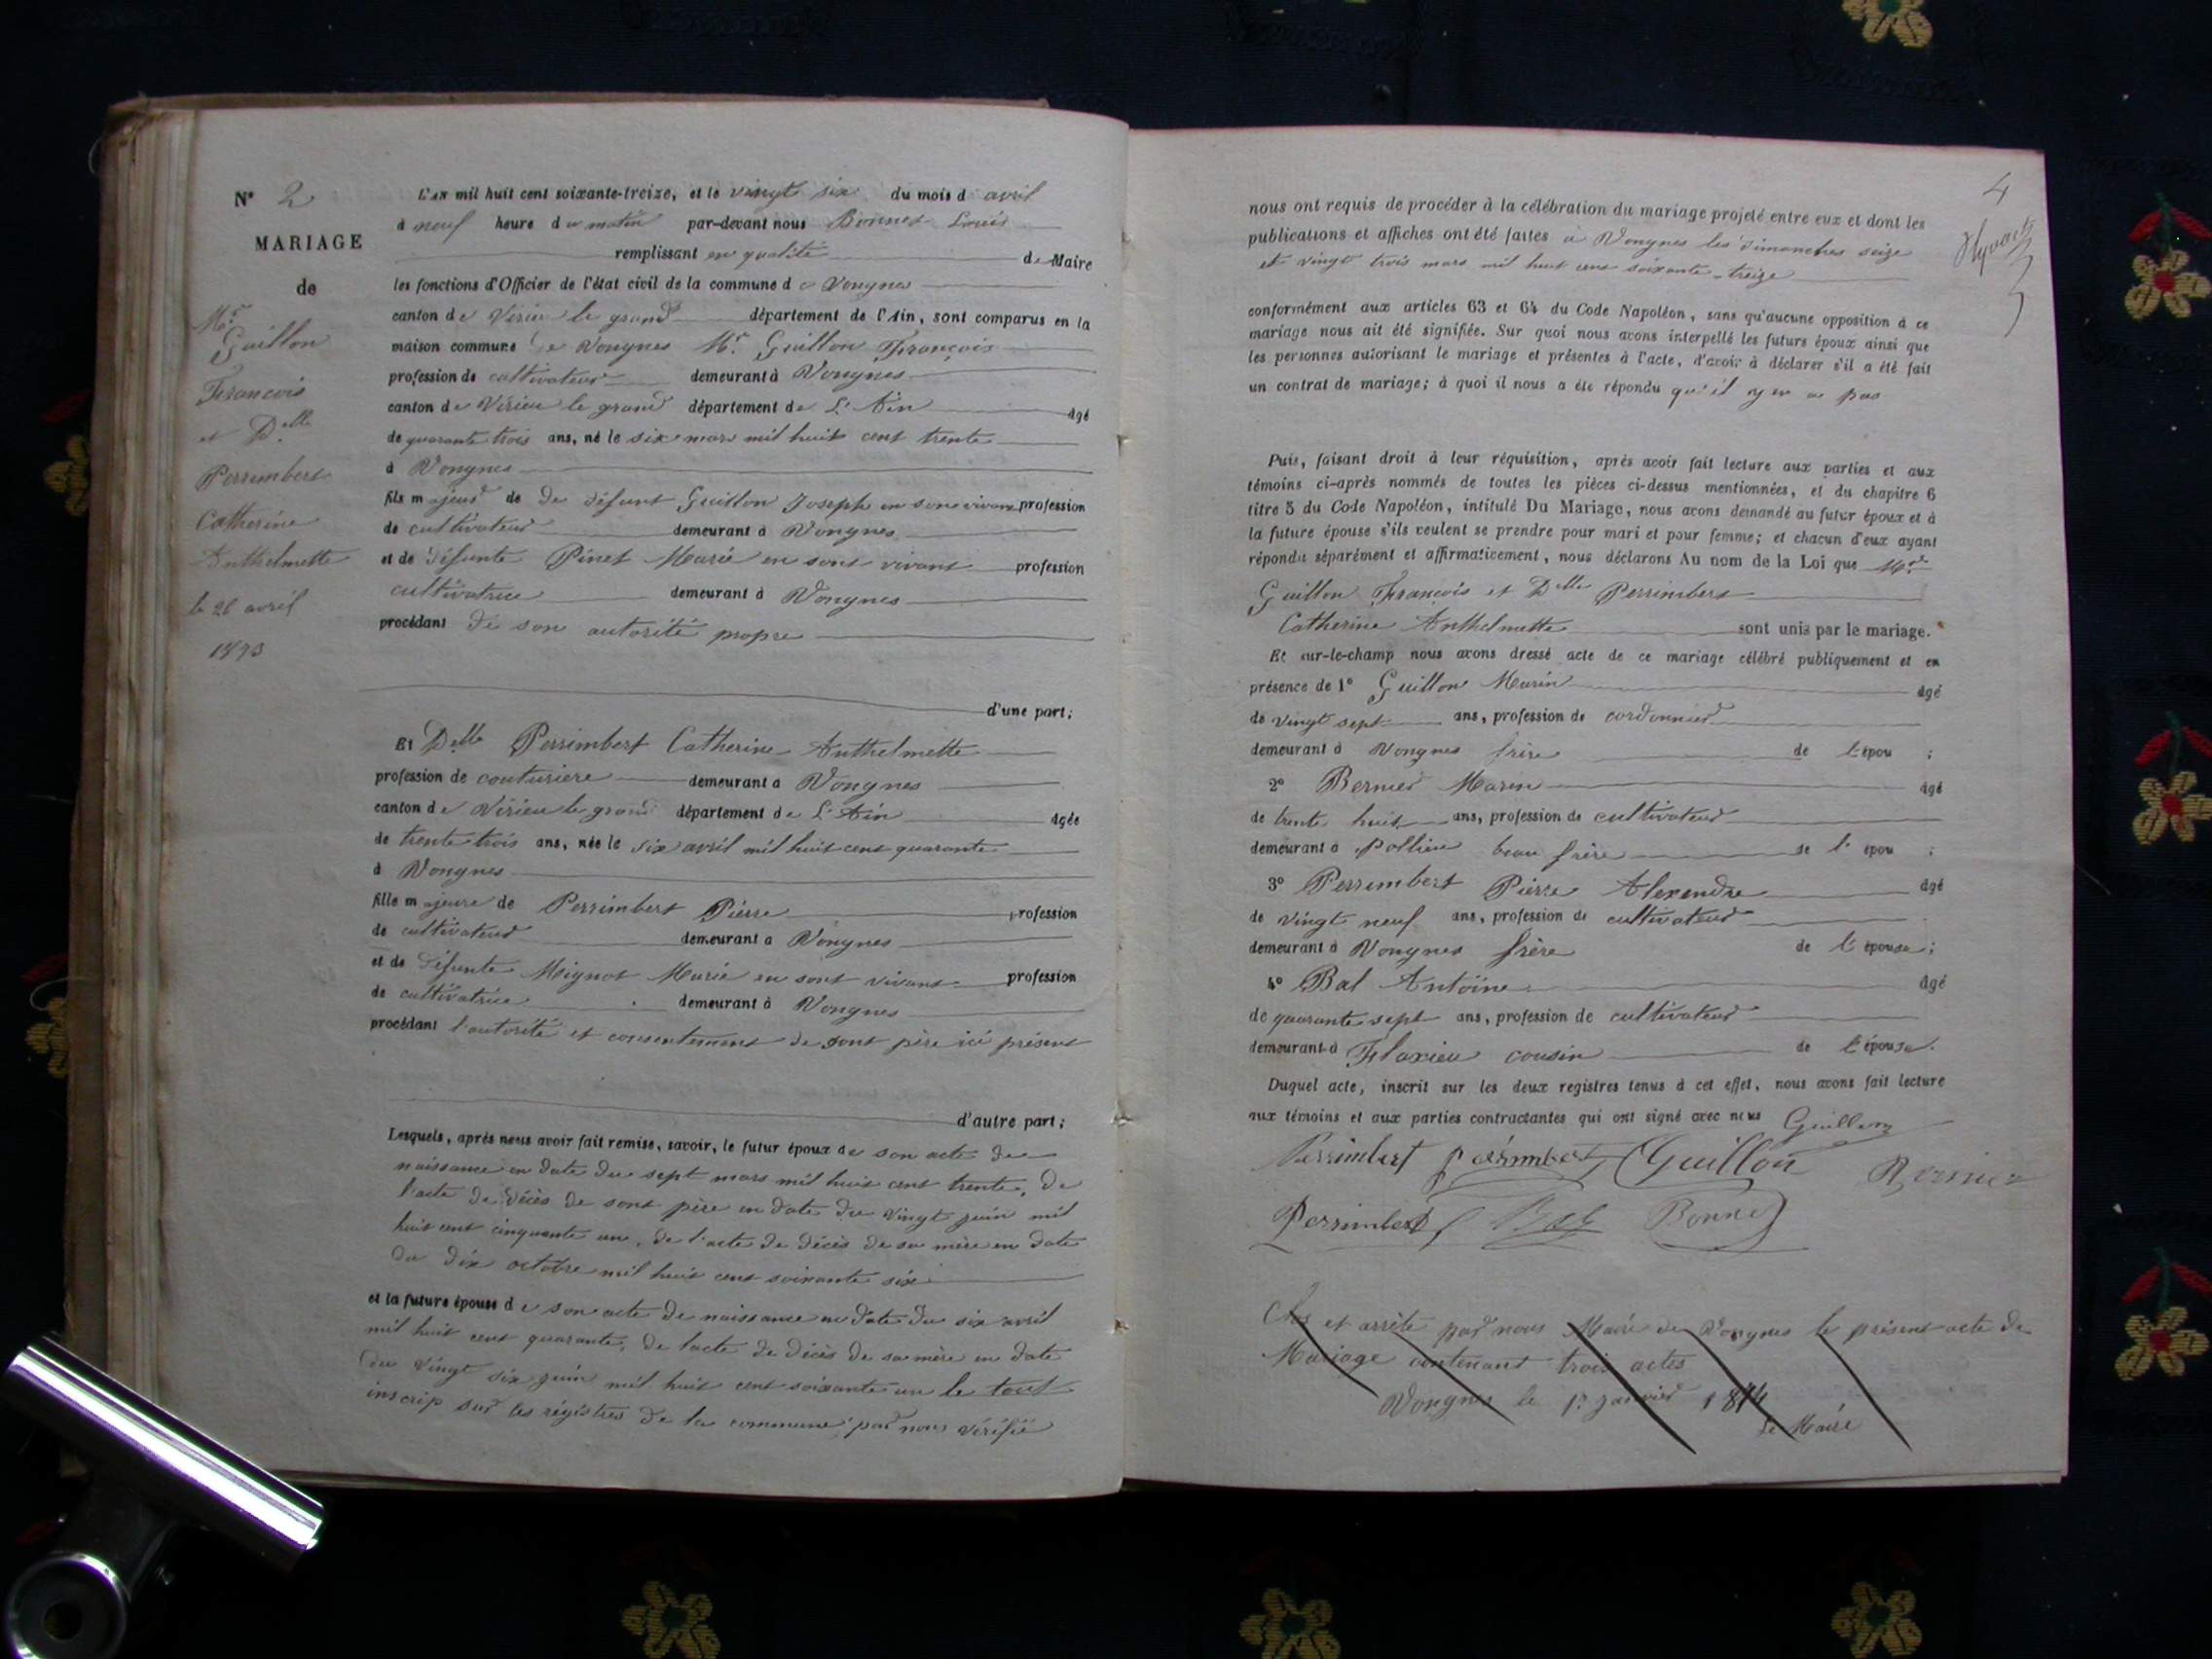 N° 2
MARIAGE
de
Mr
Guillon
François
et Delle
Perrimbert
Catherine
Anthelmette
le 26 avril
1873
L'AN mil huit cent soixante-treize, et le vingt six du mois d avril
à neuf heure du matin par-devant nous Bonnet Louis
remplissant en qualité de Maire
les fonctions d'Officier de l'état civil de la commune de Vongnes
canton de Virieu le grand département de l'Ain, sont comparus en la
maison commune de Vongnes Mr Guillon François
profession de cultivateur demeurant à Vongnes
canton de Virieu le grand département de L'Ain âgé
de quarante trois ans, né le six mars mil huit cent trente
à Vongnes
fils majeur de de défunt Guillon Joseph en son vivant profession
de cultivateur demeurant à Vongnes
et de défunte Pinet Marie en sont vivant profession
cultivatrice demeurant à Vongnes
procédant de son autorité propre
d'une part;
Et Delle Perrimbert Catherine Anthelmette
profession de couturiere demeurant à Vongnes
canton de Virieu le grand département de L'Ain âgée
de trente trois ans, née le six avril mil huit cent quarante
à Vongnes
fille majeure de Perrimbert Pierre profession
de cultivateur demeurant à Vongnes
et de défunte Mignot Marie en sont vivant profession
de cultivatrice demeurant à Vongnes
procédant l'autorité et consentement de sont père ici présent
d'autre part;
Lesquels, après nous avoir fait remise, savoir, le futur époux de son acte de
naissance en date du sept mars mil huit cent trente, de
l'acte de décès de sont père en date du vingt juin mil
huit cent cinquante un, de l'acte de décès de sa mère en date
du dix octobre mil huit cent soixante six
et la future épouse de son acte de naissance en date du six avril
mil huit cent quarante, de l'acte de décès de sa mère en date
du vingt six juin mil huit cent soixante un le tout
inscrip sur les régistres de la commune par nous vérifié
4
nous ont requis de procéder à la célébration du mariage projeté entre eux et dont les
publications et affiches ont été faites à Vongnes les dimanches seize
et vingt trois mars mil huit cent soixante-treize
conformément aux articles 63 et 64 du Code Napoléon, sans qu'aucune opposition à ce
mariage nous ait été signifiée. Sur quoi nous avons interpellé les futurs époux ainsi que
les personnes autorisant le mariage et présentes à l'acte, d'avoir à déclarer s'il a été fait
un contrat de mariage; à quoi il nous a été répondu qu'il n'y en a pas
Puis, faisant droit à leur réquisition, après avoir fait lecture aux parties et aux
témoins ci-après nommés de toutes les pièces ci-dessus mentionnées, et du chapitre 6
titre 5 du Code Napoléon, intitulé Du Mariage, nous avons demandé au futur époux et à
la future épouse s'ils veulent se prendre pour mari et pour femme; et chacun d'eux ayant
répondu séparément et affirmativement, nous déclarons Au nom de la Loi que Mr
Guillon François et Delle Perrimbert
Catherine Anthelmette sont unis par le mariage.
Et sur-le-champ nous avons dressé acte de ce mariage célébré publiquement et en
présence de 1° Guillon Marin âgé
de vingt sept ans, profession de cordonnier
demeurant à Vongnes frère de l'épou ;
2° Bernier Marin âgé
de trente huit ans, profession de cultivateur
demeurant à Pollieu beau frère de l' épou ;
3° Perrimbert Pierre Alexendre âgé
de vingt neuf ans, profession de cultivateur
demeurant à Vongnes frère de l'épouse;
4° Bal Antoine âgé
de quarante sept ans, profession de cultivateur
demeurant à Flaxieu cousin de l'épouse.
Duquel acte, inscrit sur les deux registres tenus à cet effet, nous avons fait lecture
aux témoins et aux parties contractantes qui ont signé avec nous Guillon
Perrimbert Perrimbert Guillon Bernier
Perrimbert Bal Bonnet
Clos et arrêté par nous Maire de Vongnes le présent acte de
Mariage contenant trois actes
Vongnes le 1er janvier 1874
Le Maire